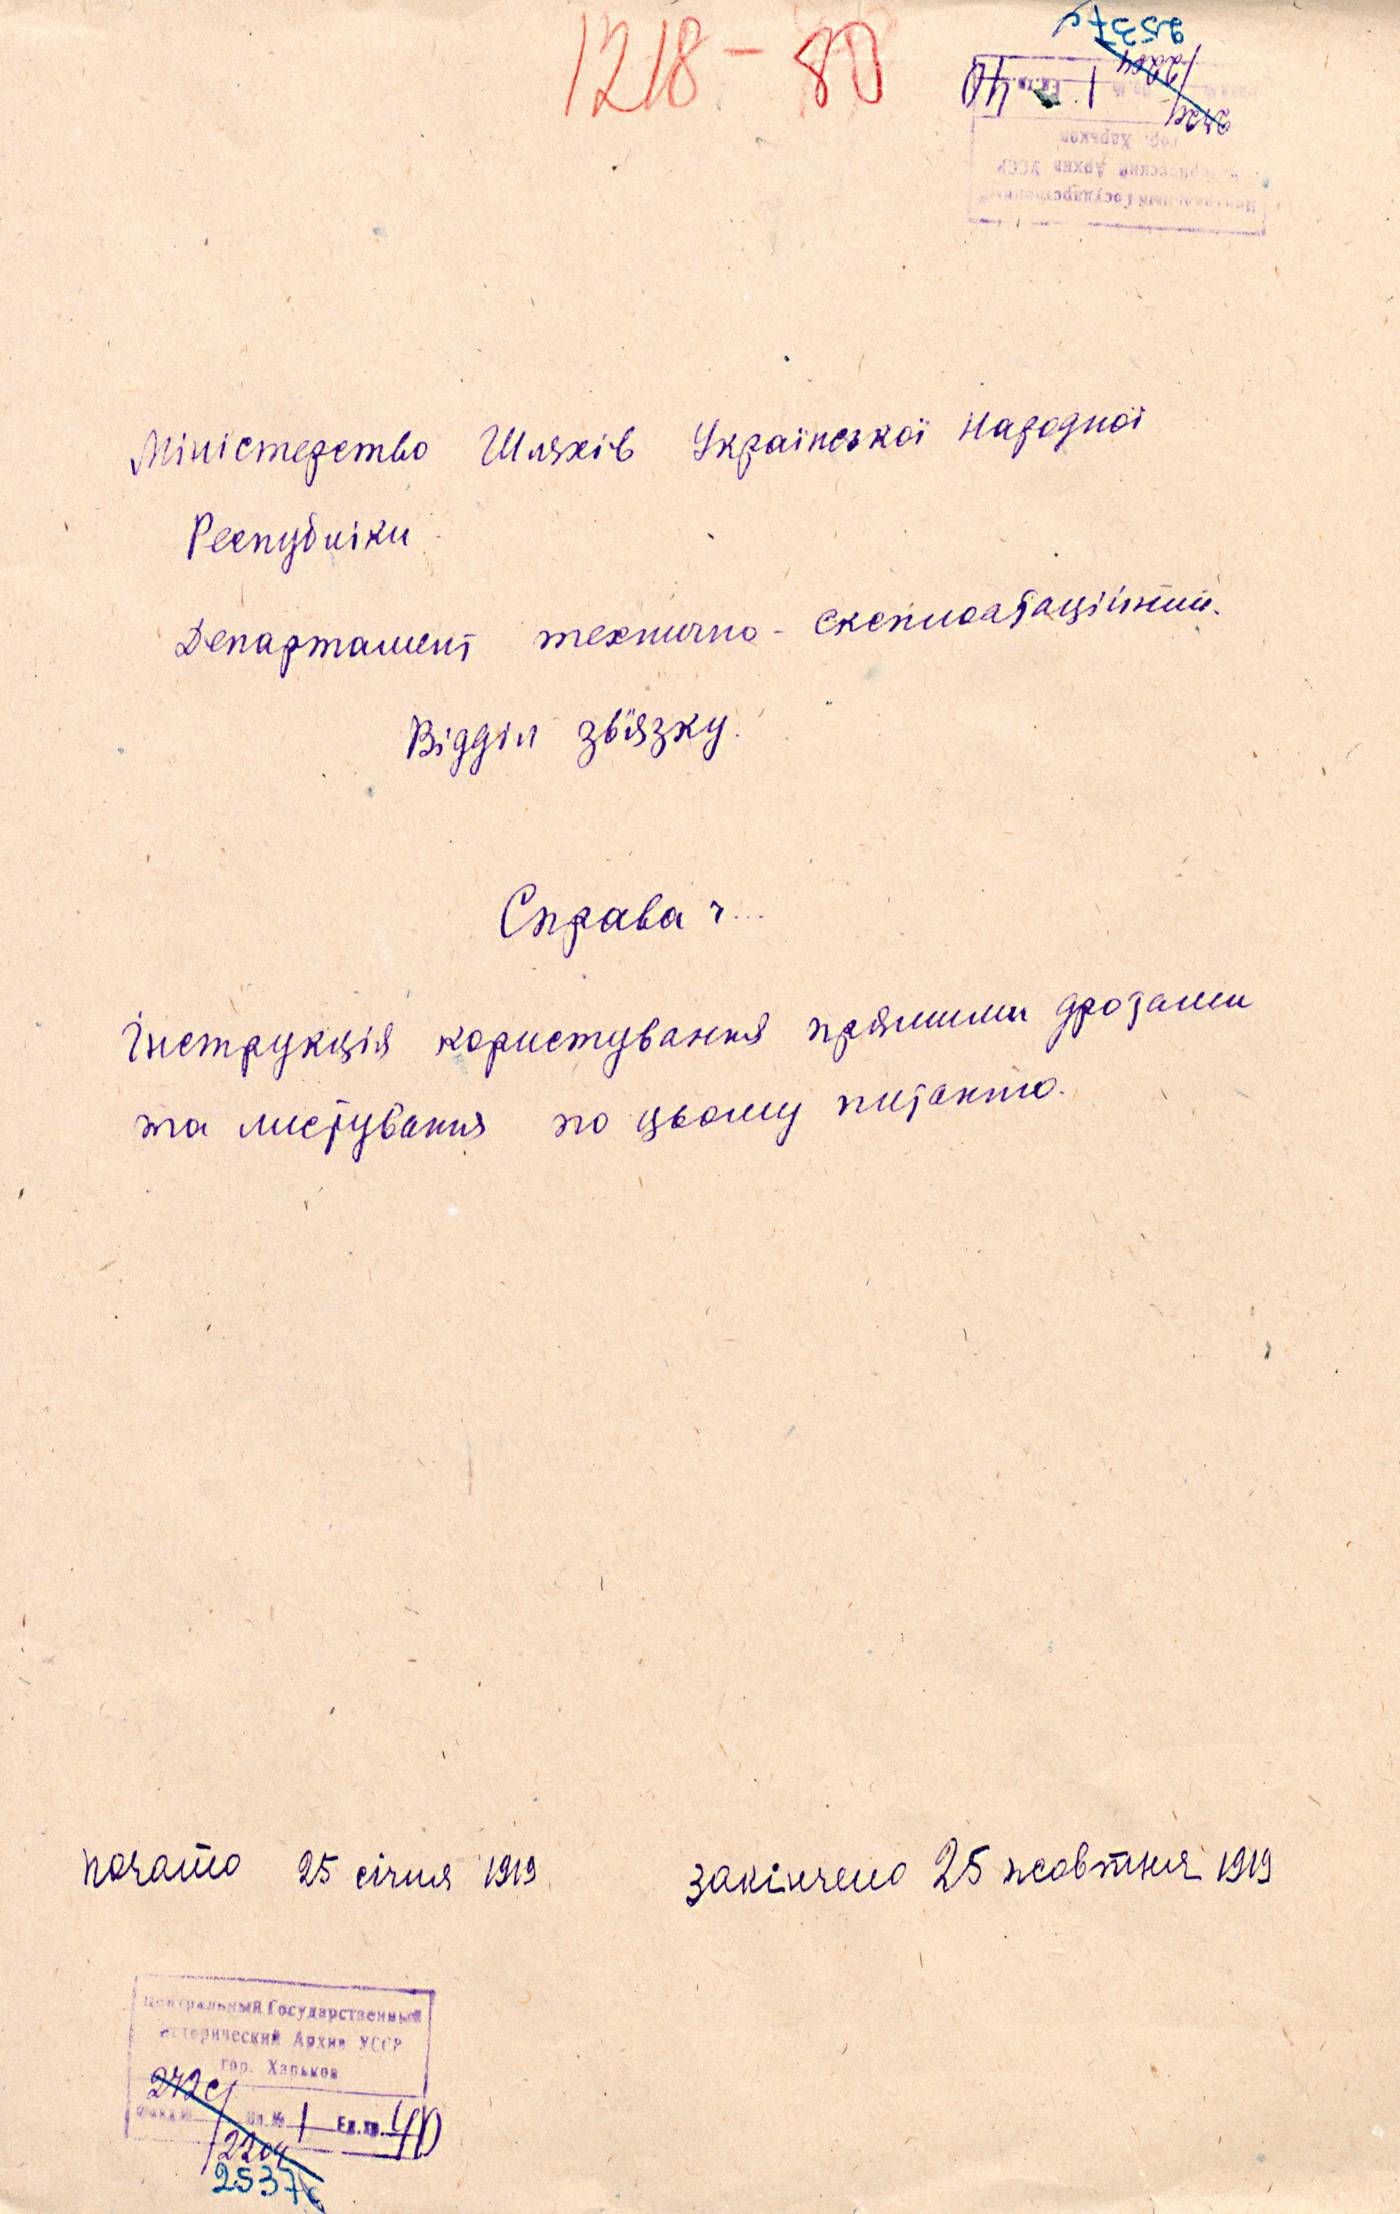 1218-80
2537с
Центральный Государственный
исторический Архив УССР
гор. Харьков
Оп.№ 1 Ед.хр. 40
Міністерство Шляхів Української Народної
Республіки.
Департамент технично-експлоатаційний.
Відділ звязку.
Справа ч...
Інструкція користування прямими дротами
та листування по цьому питанню.
почато 25 січня 1919
закінчено 25 жовтня 1919
Центральный Государственный
исторический Архив УССР
гор. Харьков
242с
Фонд № Оп.№ 1 Ед.хр. 40
2537с